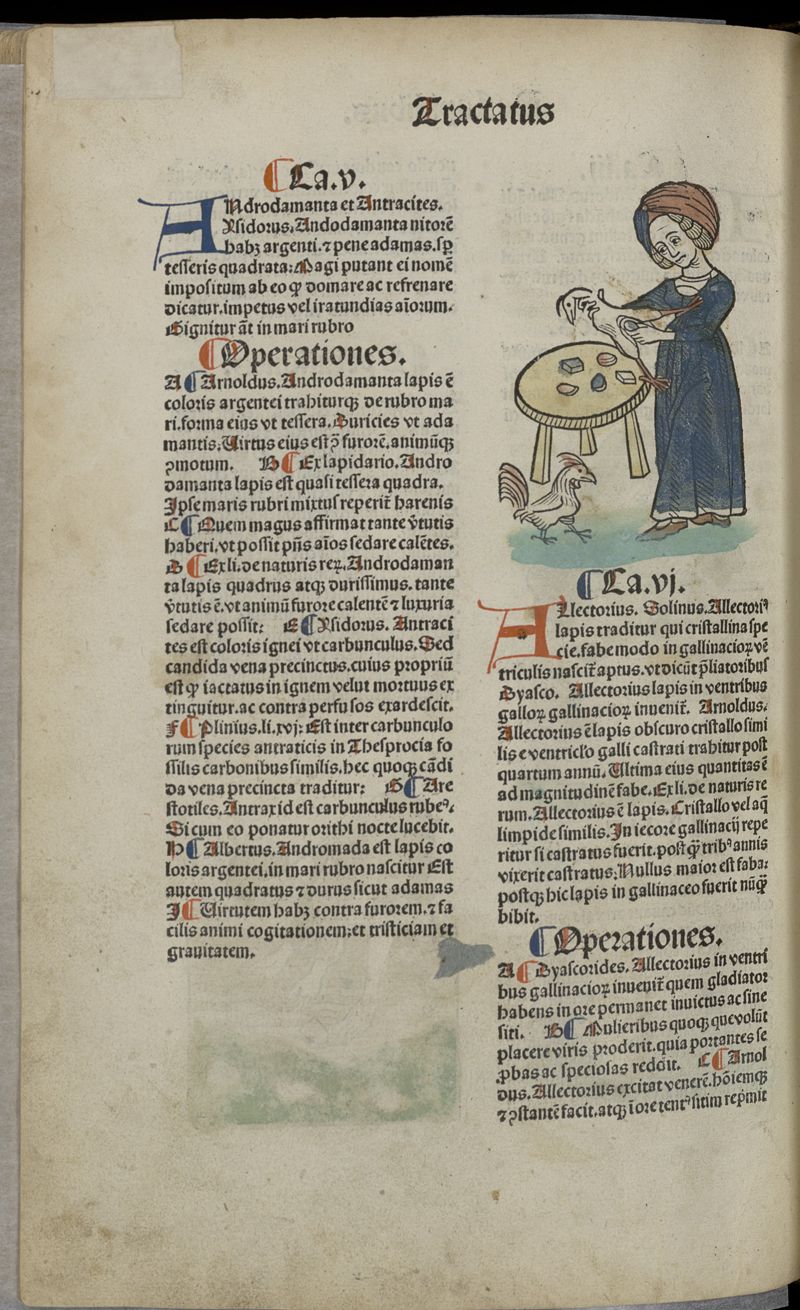 Tractatus
¶ Ca.v.
ANdrodamanta et Antracites.
Ysidorus. Andodamanta nitorē
habꝫ argenti. ⁊ pene adamas. sꝑ
tesseris quadrata: Magi putant ei nomē
impositum ab eo ꝙ domare ac refrenare
dicatur. impetus vel iratundias aīorum.
Gignitur āt in mari rubro
¶ Operationes.
A ¶ Arnoldus. Androdamanta lapis ē
coloris argentei trahiturqꝫ de rubro ma
ri. forma eius vt tessera. Duricies vt ada
mantis. Uirtus eius est ꝯ furorē. animūqꝫ
ꝯmotum. B ¶ Ex lapidario. Andro
damanta lapis est quasi tessera quadra.
Ipse maris rubri mixtus reperit᷑ harenis
C ¶ Quem magus affirmat tante v̄tutis
haberi. vt possit pn̄s aīos sedare calētes.
D ¶ Ex li. de naturis reꝝ. Androdaman
ta lapis quadrus atqꝫ durissimus. tante
v̄tutis ē. vt animū furore calentē ⁊ luxuria
sedare possit: E ¶ Ysidorus. Antraci
tes est coloris ignei vt carbunculus. Sed
candida vena precinctus. cuius propriū
est ꝙ iactatus in ignem velut mortuus ex
tinguitur. ac contra perfusos exardescit.
F ¶ Plinius. li. xvj: Est inter carbunculo
rum species antraticis in Thesprocia fo
ssilis carbonibus similis. hec quoqꝫ cādi
da vena precincta traditur: G ¶ Are
stotiles. Antraxid est carbunculus rubeꝰ.
Si cum eo ponatur orithi nocte lucebit.
H ¶ Albertus. Andromada est lapis co
loris argentei. in mari rubro nascitur Est
autem quadratus ⁊ durus sicut adamas
I ¶ Uirtutem habꝫ contra furorem. ⁊ fa
cilis animi cogitationem: et tristiciam et
grauitatem.
¶ Ca.vj.
ALlectorius. Solinus. Allectoriꝰ
lapis traditur qui cristallina spe
cie. fabe modo in gallinacioꝝ vē
triculis nascit᷑ aptus. vt dicūt p̄liatoribus
Dyasco. Allectorius lapis in ventribus
galloꝝ gallinacioꝝ inuenit᷑. Arnoldus.
Allectorius ē lapis obscuro cristallo simi
lis e ventriclo galli castrati trahitur post
quartum annū. Ultima eius quantitas ē
ad magnitudinē fabe. Ex li. de naturis re
rum. Allectorius ē lapis. Cristallo vel aq̄
limpide similis. In iecore gallinacij repe
ritur si castratus fuerit. postꝙ̄ tribꝰ annis
vixerit castratus. Nullus maior est faba:
postqꝫ hic lapis in gallinaceo fuerit nūꝙ̄
bibit.
¶ Operationes.
A ¶ Dyascorides. Allectorius in ventri
bus gallinacioꝝ inuenit᷑ quem gladiator
habens in ore permanet inuictus ac sine
siti. B ¶ Mulieribus quoqꝫ que volūt
placere viris proderit. quia portantes se
ꝓbas ac speciosas reddit. C ¶ Arnol
dus. Allectorius excitat venerē. hōiemqꝫ
⁊ ꝯstantē facit. atqꝫ ī ore tentꝰ sitim rep̄mit